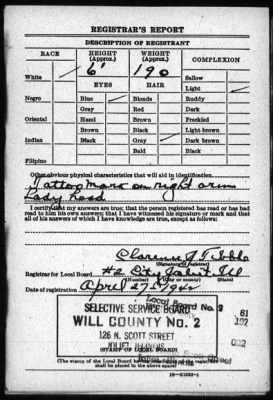 REGISTRAR'S REPORT
DESCRIPTION OF REGISTRANT
RACE
HEIGHT (Approx.)
WEIGHT (Approx.)
COMPLEXION
White ✓
6'
190
Sallow
EYES
HAIR
Light ✓
Negro
Blue ✓
Blonde
Ruddy
Gray
Red
Dark
Oriental
Hazel
Brown
Freckled
Brown
Black
Light brown
Indian
Black
Gray ✓
Dark brown
Bald
Black
Filipino
Other obvious physical characteristics that will aid in identification
Tattoo mark on right arm
Lady head
I certify that my answers are true; that the person registered has read or has had
read to him his own answers; that I have witnessed his signature or mark and that
all of his answers of which I have knowledge are true, except as follows:
Clarence
(Signature of registrar)
Registrar for Local Board #2 City Joliet, Ill
(Number) (City or county) (State)
Date of registration April 27, 1942
Local Board No. 2
SELECTIVE SERVICE BOARD
WILL COUNTY No. 2
126 N. SCOTT STREET
JOLIET, ILLINOIS
(STAMP OF LOCAL BOARD)
(The stamp of the Local Board
shall be placed in the above space)